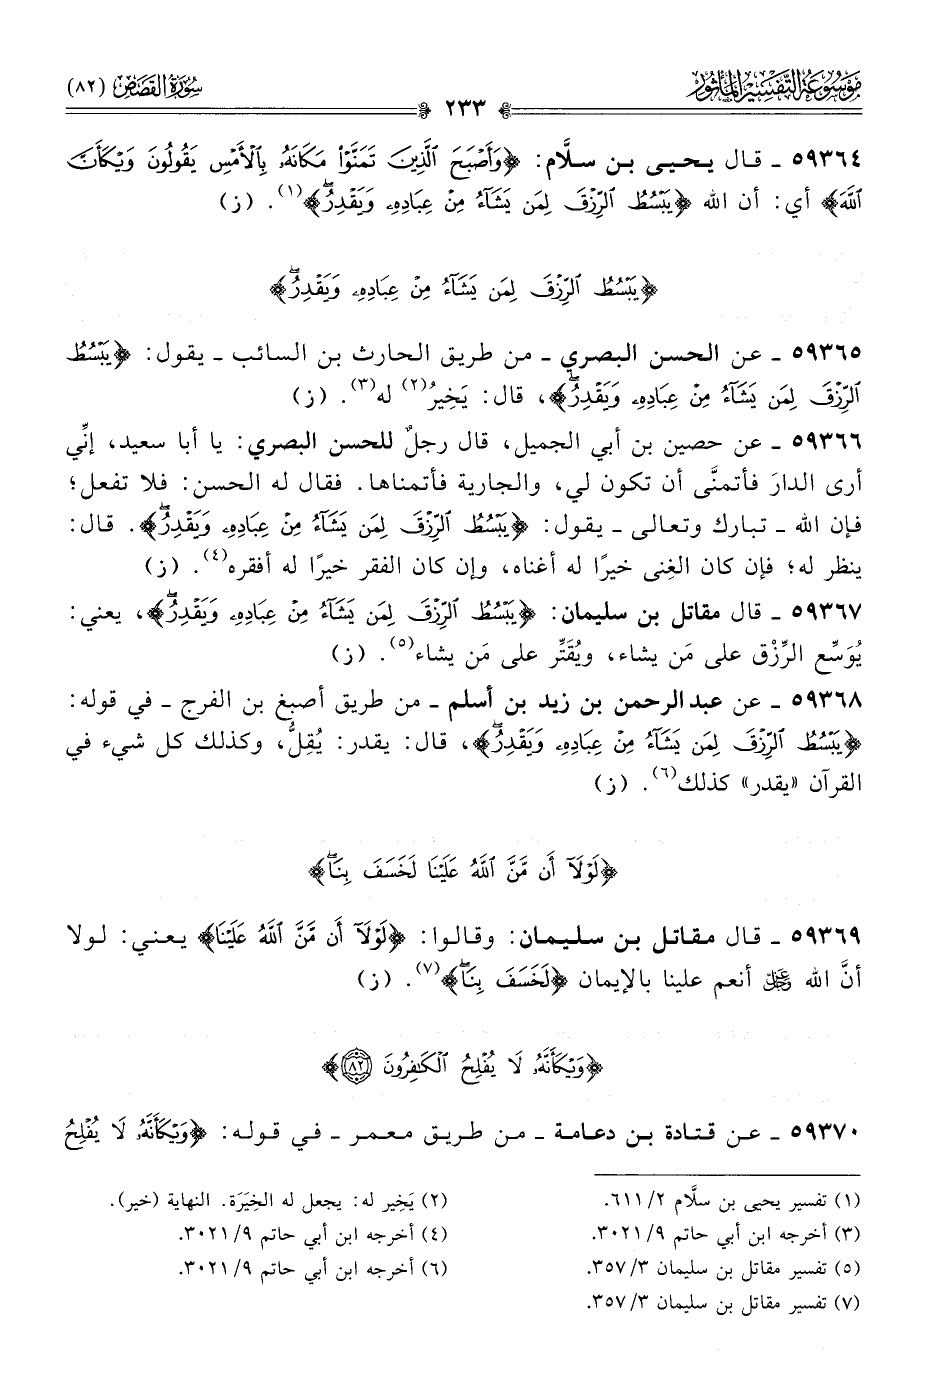 مَوْسُوعَة التَّفْسِير المَأْثُور
سُورَةُ القَصَص (٨٢)
٢٣٣
٥٩٣٦٤ ـ قال يحيى بن سلَّام: ﴿وَأَصْبَحَ ٱلَّذِينَ تَمَنَّوْا۟ مَكَانَهُۥ بِٱلْأَمْسِ يَقُولُونَ وَيْكَأَنَّ
ٱللَّهَ﴾ أي: أن الله ﴿يَبْسُطُ ٱلرِّزْقَ لِمَن يَشَآءُ مِنْ عِبَادِهِۦ وَيَقْدِرُۖ﴾(١). (ز)
﴿يَبْسُطُ ٱلرِّزْقَ لِمَن يَشَآءُ مِنْ عِبَادِهِۦ وَيَقْدِرُۖ﴾
٥٩٣٦٥ ـ عن الحسن البصري ـ من طريق الحارث بن السائب ـ يقول: ﴿يَبْسُطُ
ٱلرِّزْقَ لِمَن يَشَآءُ مِنْ عِبَادِهِۦ وَيَقْدِرُۖ﴾، قال: يَخِيرُ(٢) له(٣). (ز)
٥٩٣٦٦ ـ عن حصين بن أبي الجميل، قال رجلٌ للحسن البصري: يا أبا سعيد، إنِّي
أرى الدارَ فأتمنَّى أن تكون لي، والجارية فأتمناها. فقال له الحسن: فلا تفعل؛
فإن الله ـ تبارك وتعالى ـ يقول: ﴿يَبْسُطُ ٱلرِّزْقَ لِمَن يَشَآءُ مِنْ عِبَادِهِۦ وَيَقْدِرُۖ﴾. قال:
ينظر له؛ فإن كان الغِنى خيرًا له أغناه، وإن كان الفقر خيرًا له أفقره(٤). (ز)
٥٩٣٦٧ ـ قال مقاتل بن سليمان: ﴿يَبْسُطُ ٱلرِّزْقَ لِمَن يَشَآءُ مِنْ عِبَادِهِۦ وَيَقْدِرُۖ﴾، يعني:
يُوَسِّع الرِّزْق على مَن يشاء، ويُقَتِّر على مَن يشاء(٥). (ز)
٥٩٣٦٨ ـ عن عبد الرحمن بن زيد بن أسلم ـ من طريق أصبغ بن الفرج ـ في قوله:
﴿يَبْسُطُ ٱلرِّزْقَ لِمَن يَشَآءُ مِنْ عِبَادِهِۦ وَيَقْدِرُۖ﴾، قال: يقدر: يُقِلُّ، وكذلك كل شيء في
القرآن «يقدر» كذلك(٦). (ز)
﴿لَوْلَآ أَن مَّنَّ ٱللَّهُ عَلَيْنَا لَخَسَفَ بِنَاۖ﴾
٥٩٣٦٩ ـ قال مقاتل بن سليمان: وقالوا: ﴿لَوْلَآ أَن مَّنَّ ٱللَّهُ عَلَيْنَا﴾ يعني: لولا
أنَّ الله ﷿ أنعم علينا بالإيمان ﴿لَخَسَفَ بِنَاۖ﴾(٧). (ز)
﴿وَيْكَأَنَّهُۥ لَا يُفْلِحُ ٱلْكَٰفِرُونَ ۝٨٢﴾
٥٩٣٧٠ ـ عن قتادة بن دعامة ـ من طريق معمر ـ في قوله: ﴿وَيْكَأَنَّهُۥ لَا يُفْلِحُ
(١) تفسير يحيى بن سلَّام ٦١١/٢.
(٢) يَخِير له: يجعل له الخِيَرَة. النهاية (خير).
(٣) أخرجه ابن أبي حاتم ٣٠٢١/٩.
(٤) أخرجه ابن أبي حاتم ٣٠٢١/٩.
(٥) تفسير مقاتل بن سليمان ٣٥٧/٣.
(٦) أخرجه ابن أبي حاتم ٣٠٢١/٩.
(٧) تفسير مقاتل بن سليمان ٣٥٧/٣.